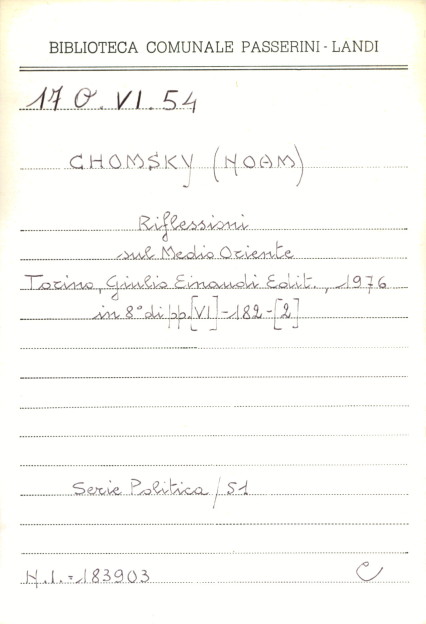 BIBLIOTECA COMUNALE PASSERINI - LANDI
17 O. VI. 54
CHOMSKY (NOAM)
Riflessioni
sul Medio Oriente
Torino, Giulio Einaudi Edit., 1976
in 8° di pp. [VI] - 182 - [2]
Serie Politica / 51
N. I. = 183903
C